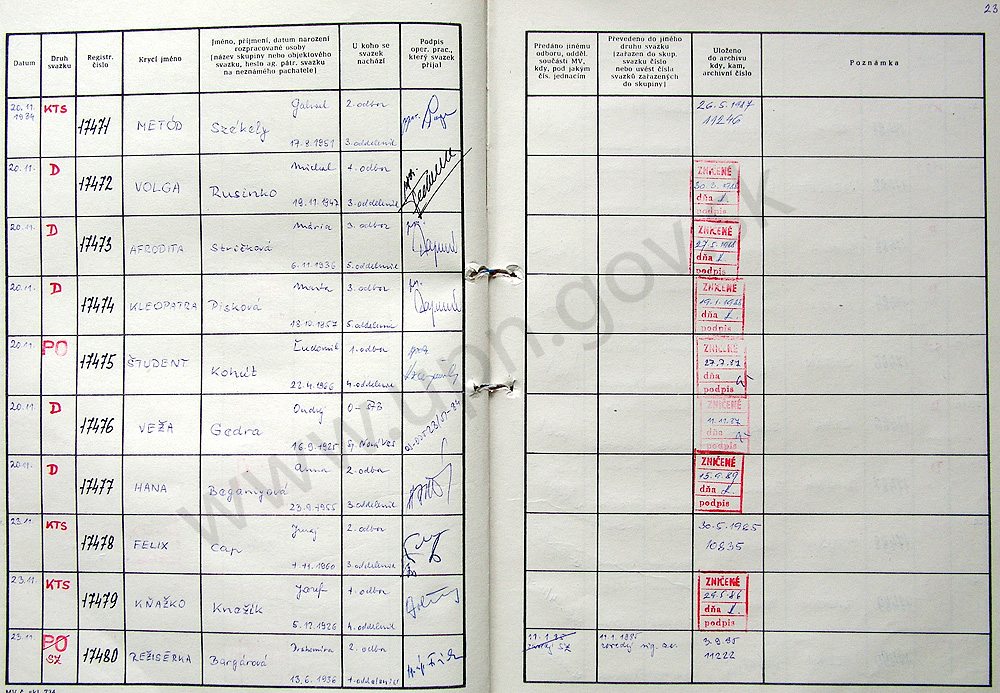 23
Datum
Druh
svazku
Registr.
číslo
Krycí jméno
Jméno, příjmení, datum narození
rozpracované osoby
(název skupiny nebo objektového
svazku, heslo ag. pátr. svazku
na neznámého pachatele)
U koho se
svazek
nachází
Podpis
oper. prac.,
který svazek
přijal
Předáno jinému
odboru, odděl.
součásti MV,
kdy, pod jakým
čís. jednacím
Převedeno do jiného
druhu svazku
(zařazen do skup.
svazku číslo
nebo uvést čísla
svazků zařazených
do skupiny)
Uloženo
do archivu
kdy, kam,
archivní číslo
Poznámka
20.11.
1984
KTS
17471
METÓD
Gabriel
Székely
17.8.1951
2. odbor
3. oddelenie
26.5.1987
11246
20.11.
D
17472
VOLGA
Michal
Rusinko
19.11.1947
4. odbor
3. oddelenie
ZNIČENÉ
dňa
podpis
20.11.
D
17473
AFRODITA
Mária
Stričková
6.11.1936
3. odbor
5. oddelenie
ZNIČENÉ
dňa
podpis
20.11.
D
17474
KLEOPATRA
Marta
Disková
18.10.1957
3. odbor
5. oddelenie
ZNIČENÉ
dňa
podpis
20.11.
PO
17475
ŠTUDENT
Ľudomil
Kohút
22.4.1966
1. odbor
4. oddelenie
ZNIČENÉ
27.7.87
dňa
podpis
20.11.
D
17476
VEŽA
Ondrej
Gedra
16.9.1925
O-ŠTB
Sp. Nová Ves
ZNIČENÉ
11.11.87
dňa
podpis
20.11.
D
17477
HANA
Anna
Begamyová
23.9.1955
2. odbor
3. oddelenie
ZNIČENÉ
15.9.89
dňa
podpis
22.11.
KTS
17478
FELIX
Juraj
Cap
7.11.1960
2. odbor
3. oddelenie
30.5.1985
10835
23.11.
KTS
17479
KŇAŽKO
Jozef
Knažík
5.12.1926
1. odbor
4. oddelenie
ZNIČENÉ
29.5.86
dňa
podpis
23.11.
PO
SZ
17480
REŽISÉRKA
Drahomíra
Bargárová
13.6.1936
2. odbor
1. oddelenie
11.1.1985
3.9.85
11222
www.upn.gov.sk